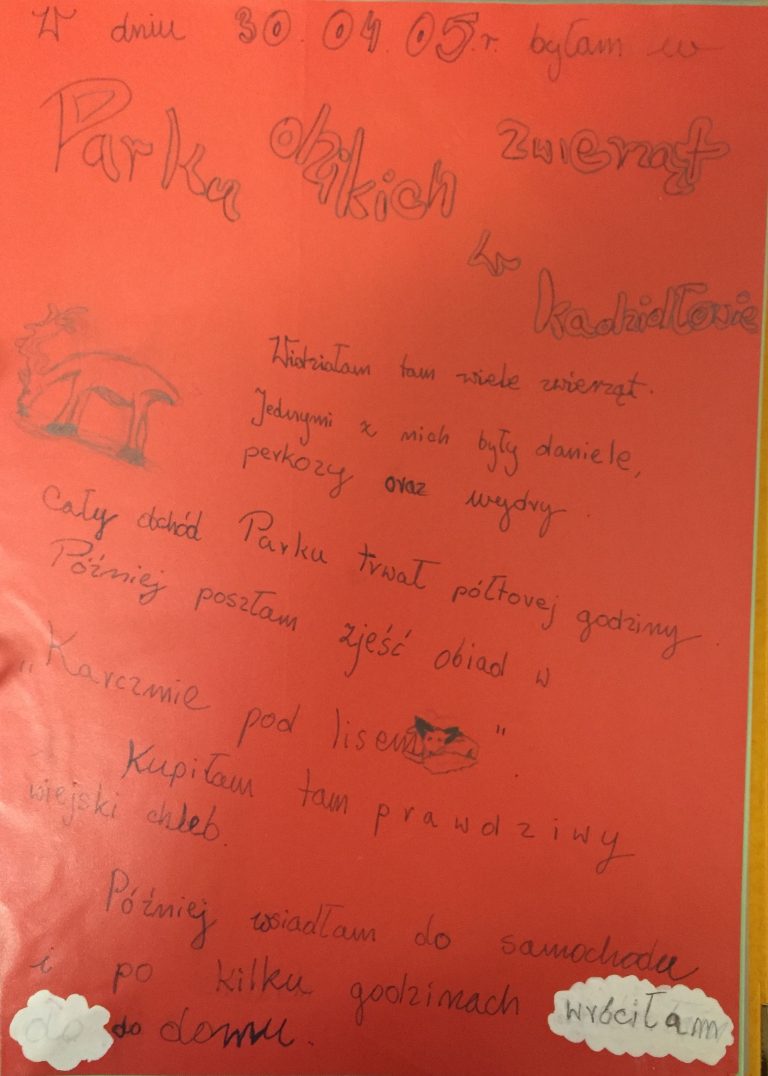 W dniu 30.04.05.r. byłam w
Parku dzikich zwierząt
w
Kadzidłowie
Widziałam tam wiele zwierząt.
Jednymi z nich były daniele,
perkozy oraz wydry.
Cały obchód Parku trwał półtovej godziny.
Później poszłam zjeść obiad w
„Karczmie pod lisem".
Kupiłam tam prawdziwy
wiejski chleb.
Później wsiadłam do samochodu
i po kilku godzinach wróciłam
do do domu.